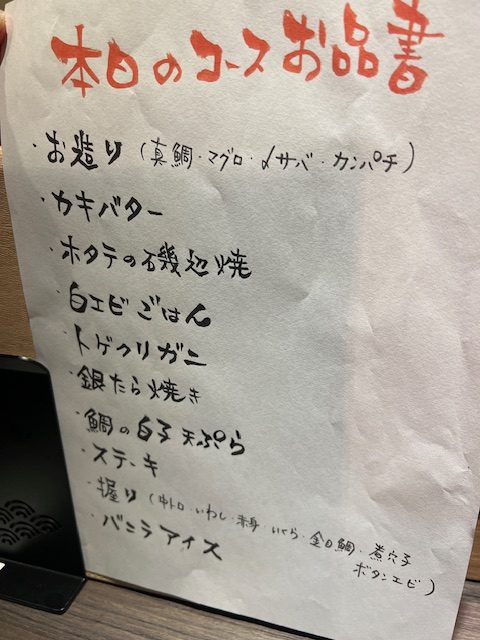 本日のコースお品書
・お造り（真鯛・マグロ・〆サバ・カンパチ）
・カキバター
・ホタテの磯辺焼
・白エビごはん
・トゲクリガニ
・銀たら焼き
・鯛の白子天ぷら
・ステーキ
・握り（中トロ・いわし・赤身・いくら・金目鯛・煮穴子
ボタンエビ）
・バニラアイス